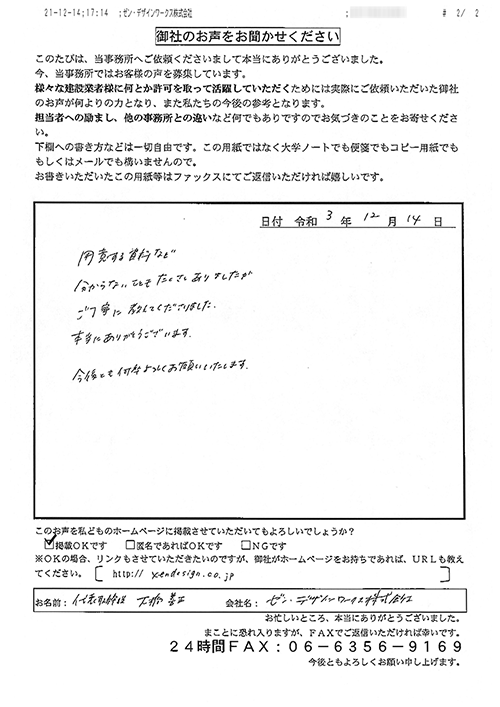 21-12-14;17:14 ;ゼン・デザインワークス株式会社 ; # 2/ 2
御社のお声をお聞かせください
このたびは、当事務所へご依頼くださいまして本当にありがとうございました。
今、当事務所ではお客様の声を募集しています。
様々な建設業者様に何とか許可を取って活躍していただくためには実際にご依頼いただいた御社
のお声が何よりの力となり、また私たちの今後の参考となります。
担当者への励まし、他の事務所との違いなど何でもありですのでお気づきのことをお寄せくださ
い。
下欄への書き方などは一切自由です。この用紙ではなく大学ノートでも便箋でもコピー用紙でも
もしくはメールでも構いませんので。
お書きいただいたこの用紙等はファックスにてご返信いただければ嬉しいです。
日付 令和 3 年 12 月 14 日
用意する資料など
分からないこともたくさんありましたが
ご丁寧に教えてくださりました。
本当にありがとうございます。
今後とも何卒よろしくお願いいたします。
このお声を私どものホームページに掲載させていただいてもよろしいでしょうか？
☑掲載OKです □匿名であればOKです □NGです
※OKの場合、リンクもさせていただきたいのですが、御社がホームページをお持ちであれば、URLも教え
てください。 [ http:// xendesign.co.jp ]
お名前： 代表取締役 会社名： ゼン・デザインワークス株式会社
お忙しいところ、本当にありがとうございました。
まことに恐れ入りますが、FAXでご返信いただければ幸いです。
24時間FAX：06-6356-9169
今後ともよろしくお願い申し上げます。